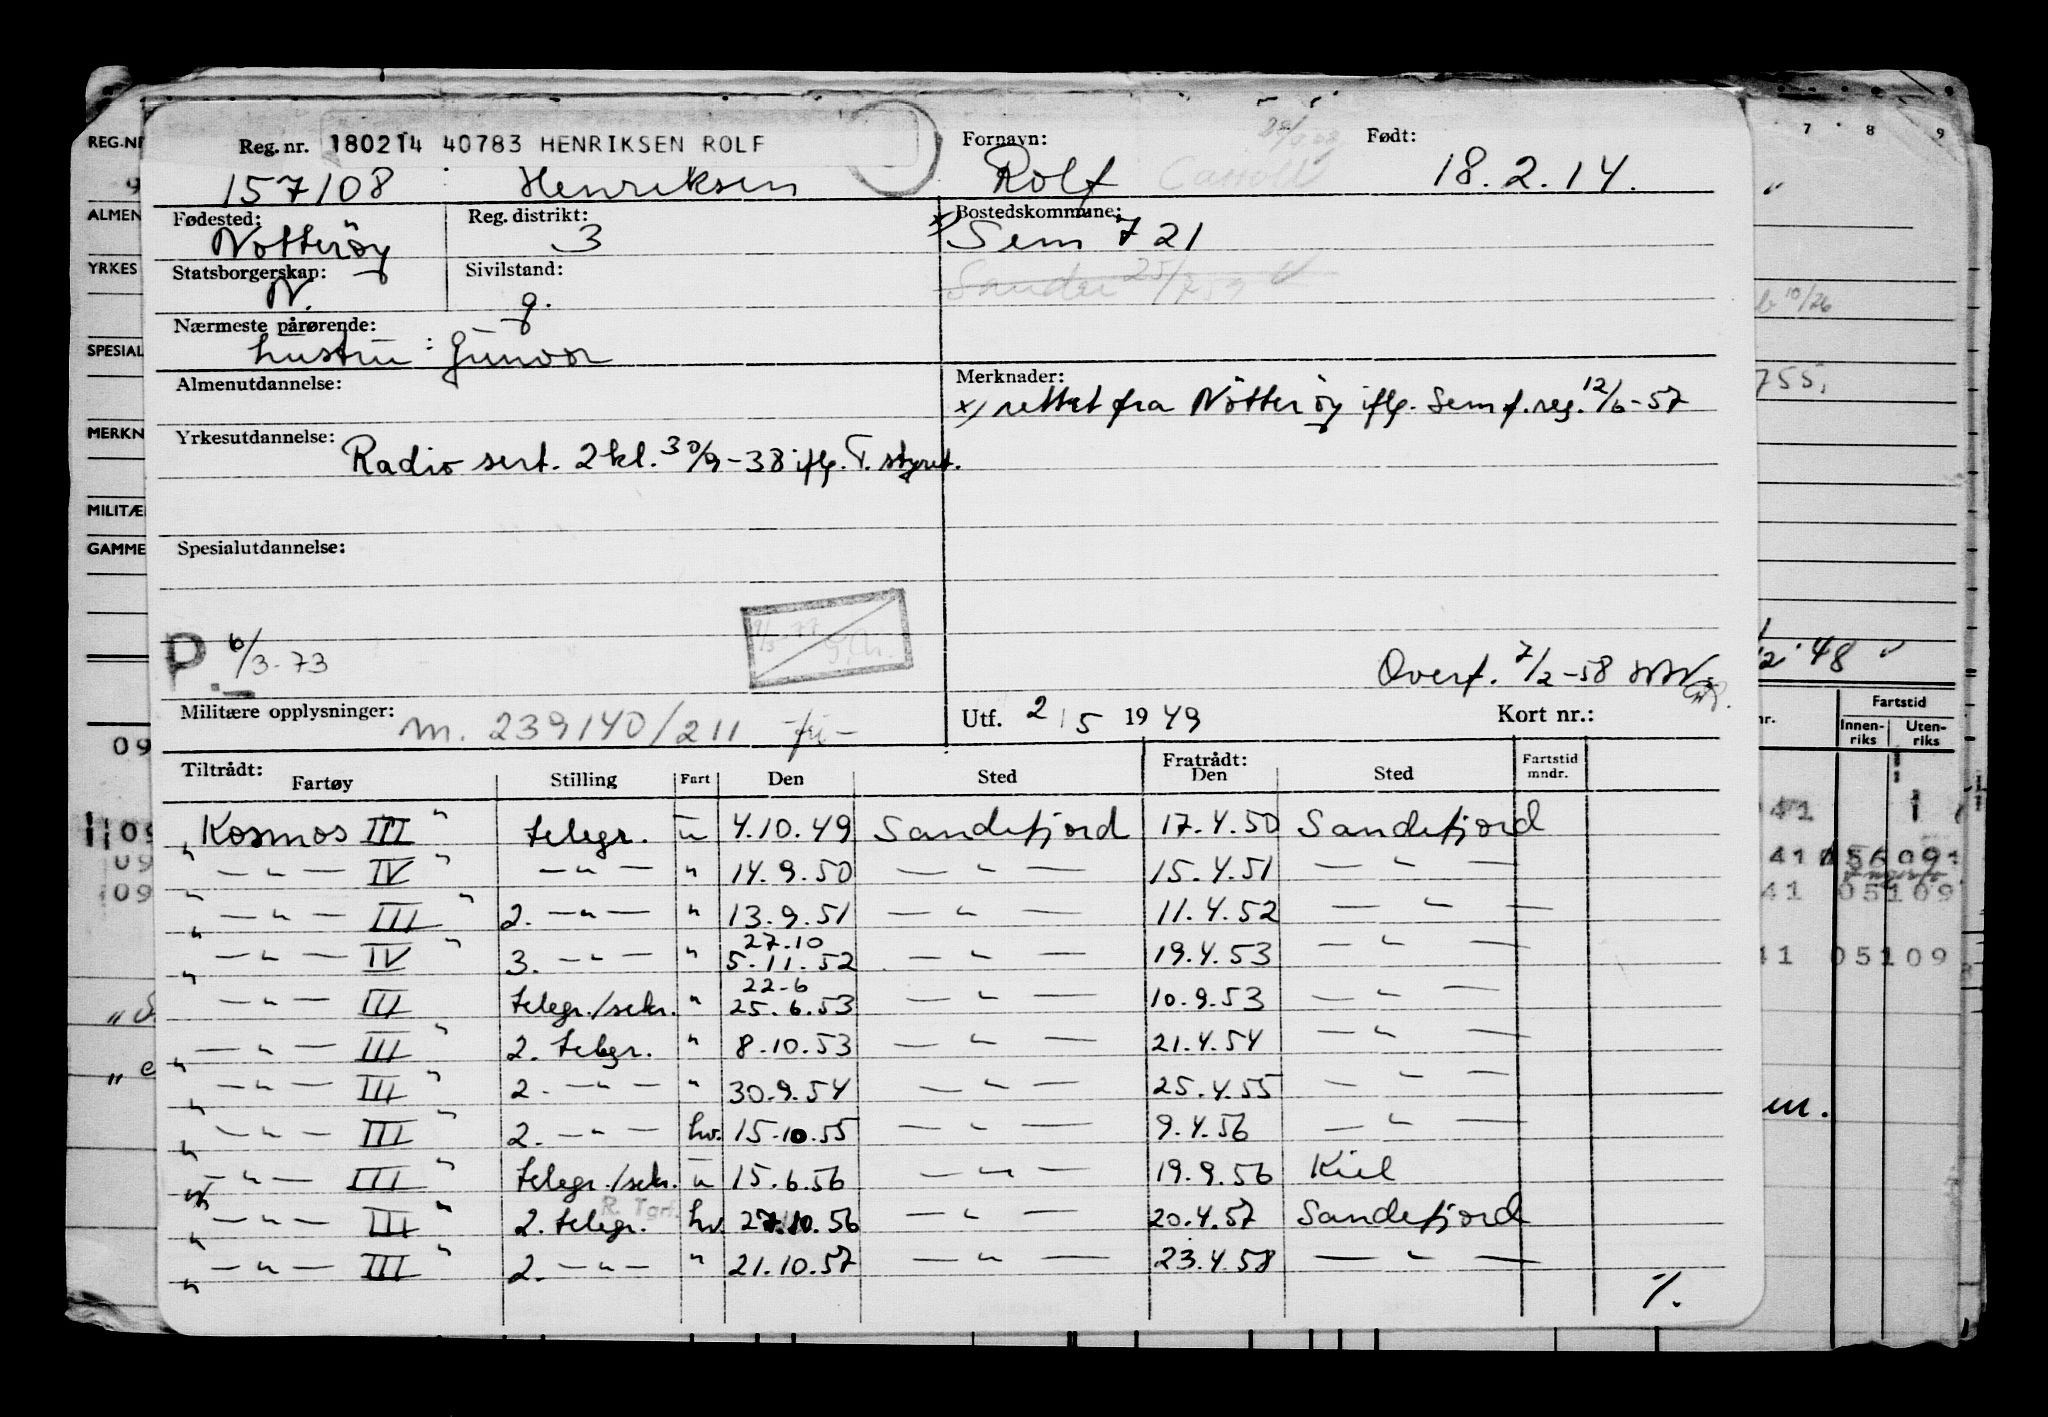 Reg. nr. 180214 40783 HENRIKSEN ROLF Fornavn: Født:
157108 Henriksen Rolf Carroll 18.2.14.
Fødested: Reg. distrikt: x) Bostedskommune:
Nötteröy 3 Sem 721
Statsborgerskap: Sivilstand:
N. g. Sandar
Nærmeste pårørende:
hustru: Gunvor
Almenutdannelse: Merknader:
x) rettet fra Nötteröy iflg. Sem f.reg. 12/6-57
Yrkesutdannelse:
Radio sert. 2 kl. 30/9-38 iflg. T. styret.
Spesialutdannelse:
P. 6/3-73
Overf. 7/2-58
Militære opplysninger: m. 239140/211 Utf. 2/5 1949 Kort nr.:
Tiltrådt: Fratrådt: Fartstid mndr.
Fartøy Stilling Fart Den Sted Den Sted
"Kosmos III" telegr. u 4.10.49 Sandefjord 17.4.50 Sandefjord
" — " — IV " — " — " 14.9.50 — " — 15.4.51 — " —
" — " — III " 2. — " — " 13.9.51 — " — 11.4.52 — " —
27.10
" — " — IV " 3. — " — " 5.11.52 — " — 19.4.53 — " —
22-6
" — " — III " telegr./sekr. " 25.6.53 — " — 10.9.53 — " —
" — " — III " 2. telegr. " 8.10.53 — " — 21.4.54 — " —
" — " — III " 2. — " — " 30.9.54 — " — 25.4.55 — " —
" — " — III " 2. — " — hv. 15.10.55 — " — 9.4.56 — " —
" — " — III " telegr./sekr. u 15.6.56 — " — 19.9.56 Kiel
R. Tgrf.
" — " — III " 2. telegr. hv. 27.10.56 — " — 20.4.57 Sandefjord
" — " — III " 2. — " — " 21.10.57 — " — 23.4.58 — " —
REG.NR
ALMEN
YRKES
SPESIAL
MERKN
MILITÆ
GAMME
7 8 9
10/26
755,
48
Fartstid
Innen-riks Uten-riks
41 05109
41 05109